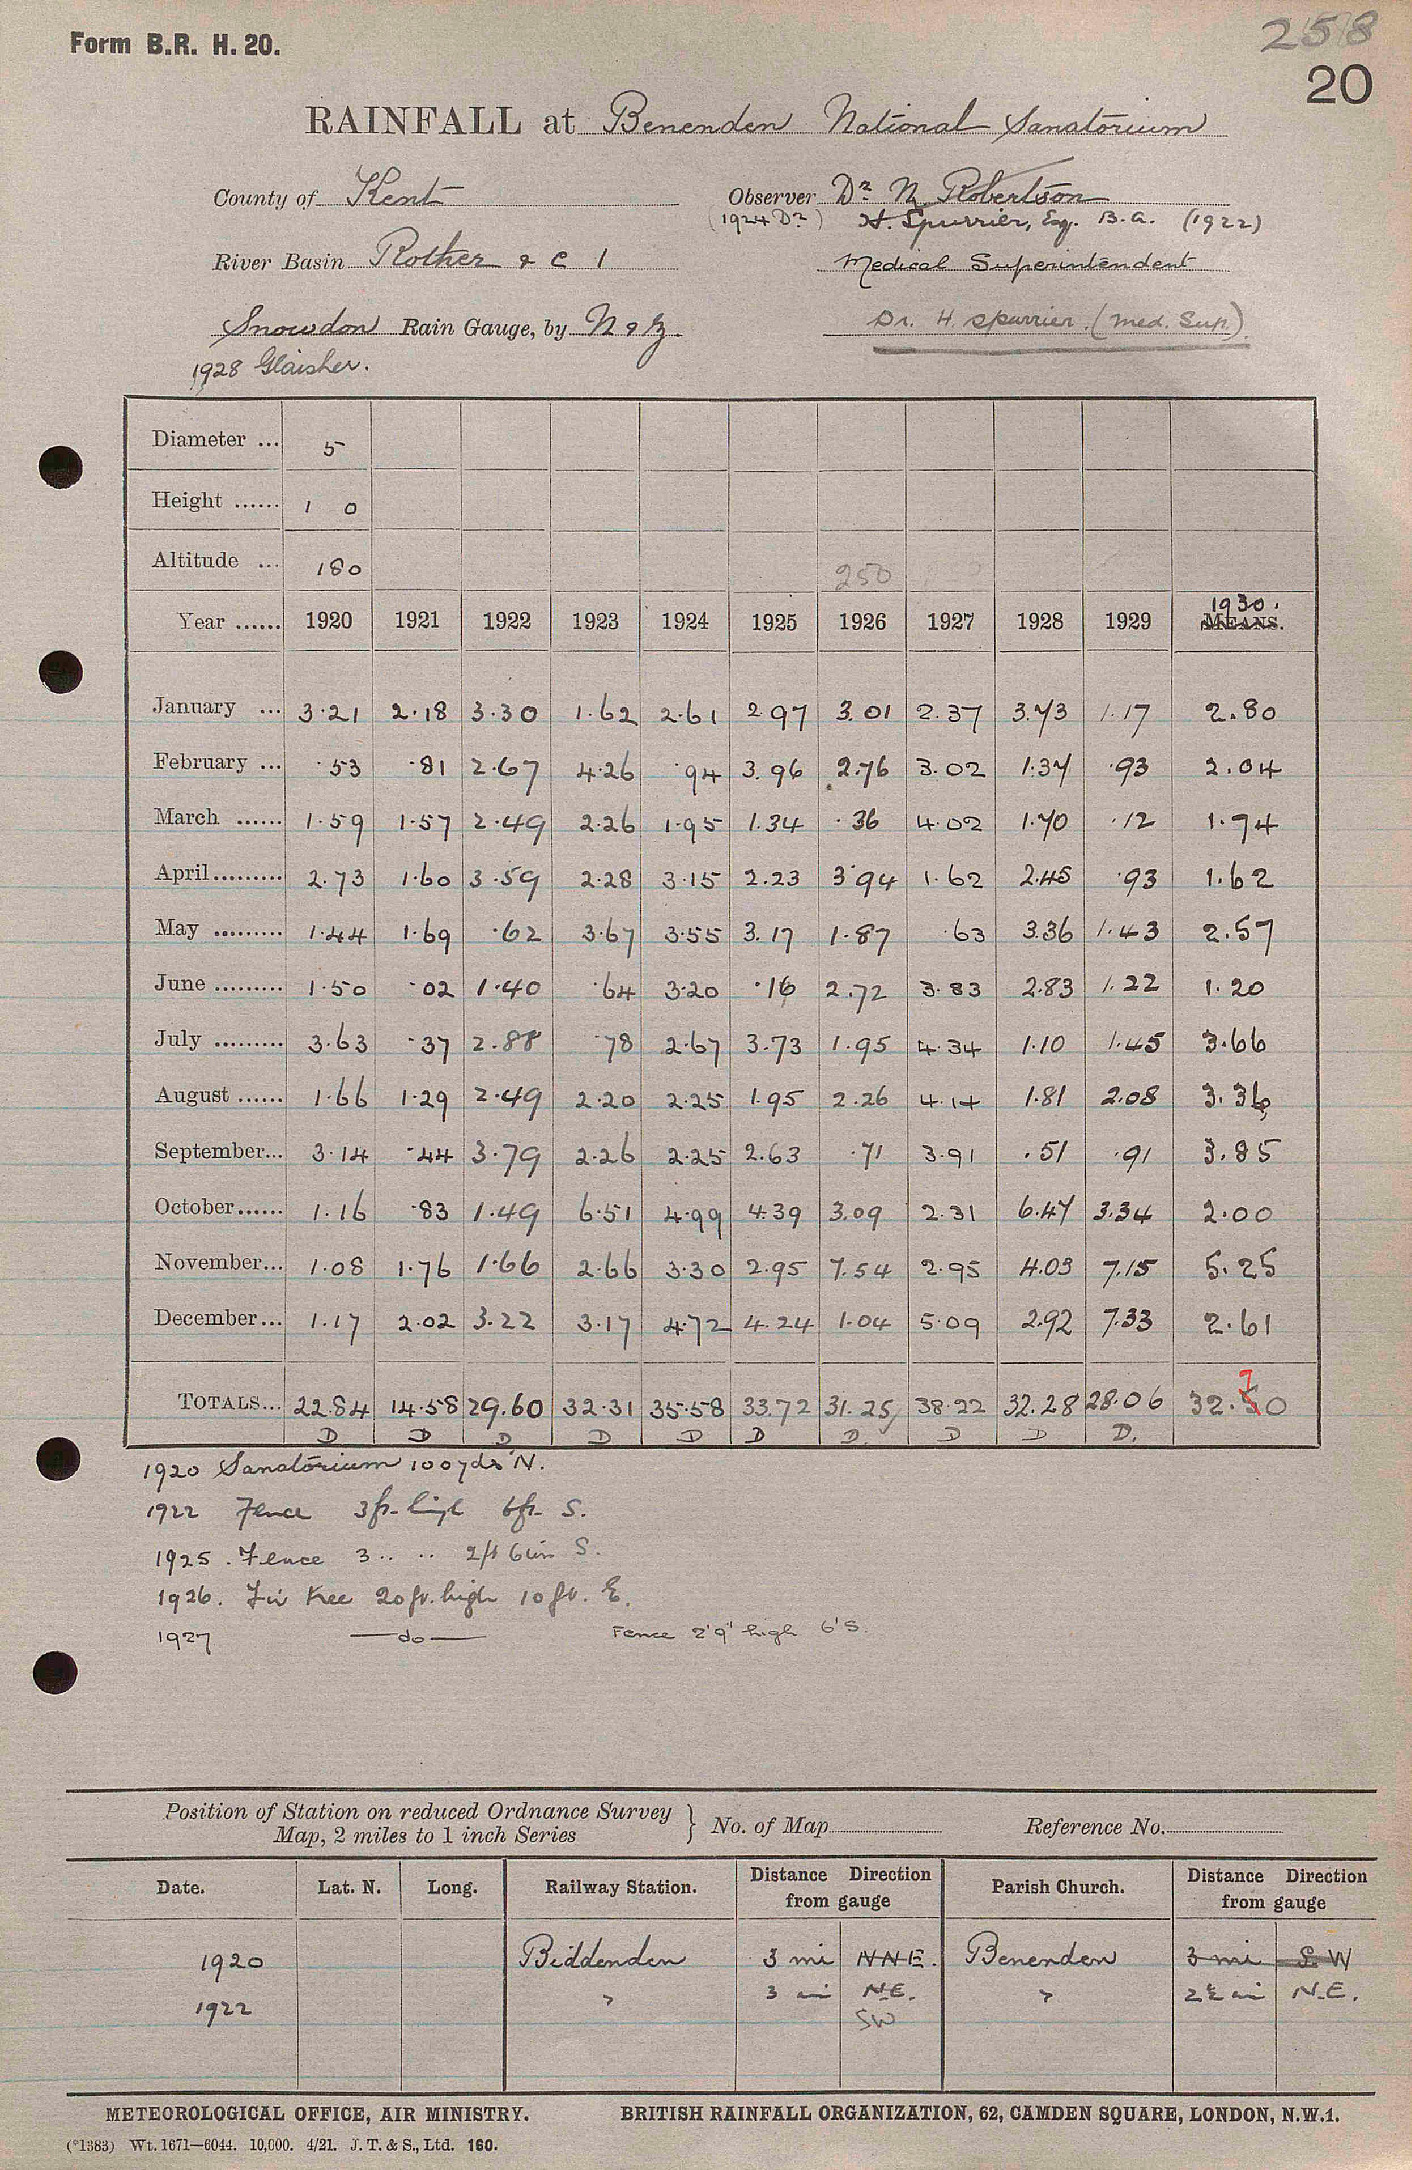 258
Form B.R. H. 20.
20
RAINFALL at Benenden National Sanatorium
County of Kent
Observer Dr N Robertson
(1924 Dr) H. Spurrier, Esq. B.A. (1922)
River Basin Rother & C 1
Medical Superintendent
Snowdon Rain Gauge, by N & Z
Dr. H. Spurrier. (Med. Sup.)
1928 Glaisher.
Diameter ... 5
Height ...... 1 0
Altitude ... 180 250
Year ...... 1920 1921 1922 1923 1924 1925 1926 1927 1928 1929 1930. MEANS.
January ... 3.21 2.18 3.30 1.62 2.61 2.97 3.01 2.37 3.73 1.17 2.80
February ... .53 .81 2.67 4.26 .94 3.96 2.76 3.02 1.37 .93 2.04
March ...... 1.59 1.57 2.49 2.26 1.95 1.34 .36 4.02 1.70 .12 1.74
April ......... 2.73 1.60 3.59 2.28 3.15 2.23 3.94 1.62 2.45 .93 1.62
May ......... 1.44 1.69 .62 3.67 3.55 3.17 1.87 .63 3.36 1.43 2.57
June ......... 1.50 .02 1.40 .64 3.20 .16 2.72 3.83 2.83 1.22 1.20
July ......... 3.63 .37 2.88 .78 2.67 3.73 1.95 4.34 1.10 1.45 3.66
August ...... 1.66 1.29 2.49 2.20 2.25 1.95 2.26 4.14 1.81 2.08 3.36
September... 3.14 .44 3.79 2.26 2.25 2.63 .71 3.91 .51 .91 3.85
October...... 1.16 .83 1.49 6.51 4.99 4.39 3.09 2.31 6.47 3.34 2.00
November... 1.08 1.76 1.66 2.66 3.30 2.95 7.54 2.95 4.03 7.15 5.25
December... 1.17 2.02 3.22 3.17 4.72 4.24 1.04 5.09 2.92 7.33 2.61
7
TOTALS... 22.84 14.58 29.60 32.31 35.58 33.72 31.25 38.22 32.28 28.06 32.50
D D D D D D D. D D D.
1920 Sanatorium 100 yds N.
1922 Fence 3 ft. high 6 ft. S.
1925. Fence 3 .. .. 2 ft 6 in S.
1926. Fir tree 20 ft. high 10 ft. E.
1927 —do— Fence 2'9" high 6' S.
Position of Station on reduced Ordnance Survey
Map, 2 miles to 1 inch Series } No. of Map Reference No.
Date. Lat. N. Long. Railway Station. Distance Direction from gauge Parish Church. Distance Direction from gauge
1920 Biddenden 3 mi NNE. Benenden 3 mi S.W
1922 " 3 mi N.E. " 2½ mi N.E.
SW
METEOROLOGICAL OFFICE, AIR MINISTRY. BRITISH RAINFALL ORGANIZATION, 62, CAMDEN SQUARE, LONDON, N.W.1.
(*1383) Wt. 1671—6044. 10,000. 4/21. J. T. & S., Ltd. 160.